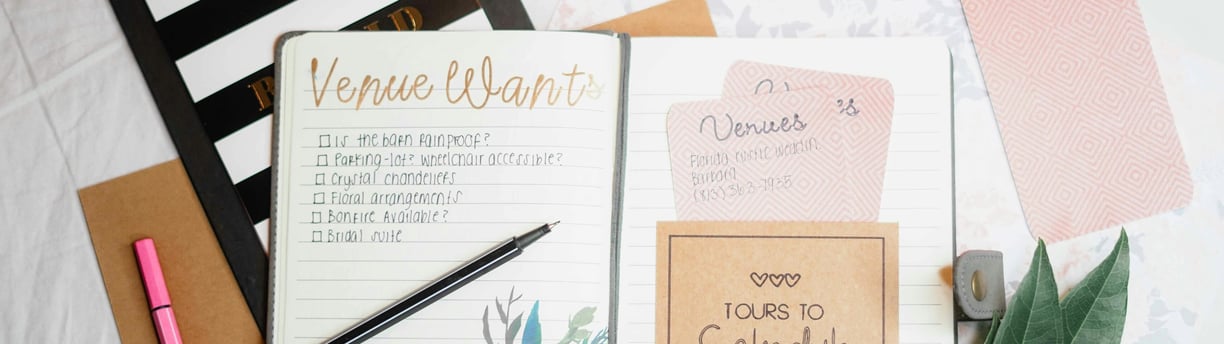 Venue Wants
Is the barn rainproof?
Parking-lot? Wheelchair accessible?
Crystal chandeliers
Floral arrangements
Bonfire Available?
Bridal suite
Venues
's
Florida rustic
Barbara
(813) 363-7935
TOURS TO